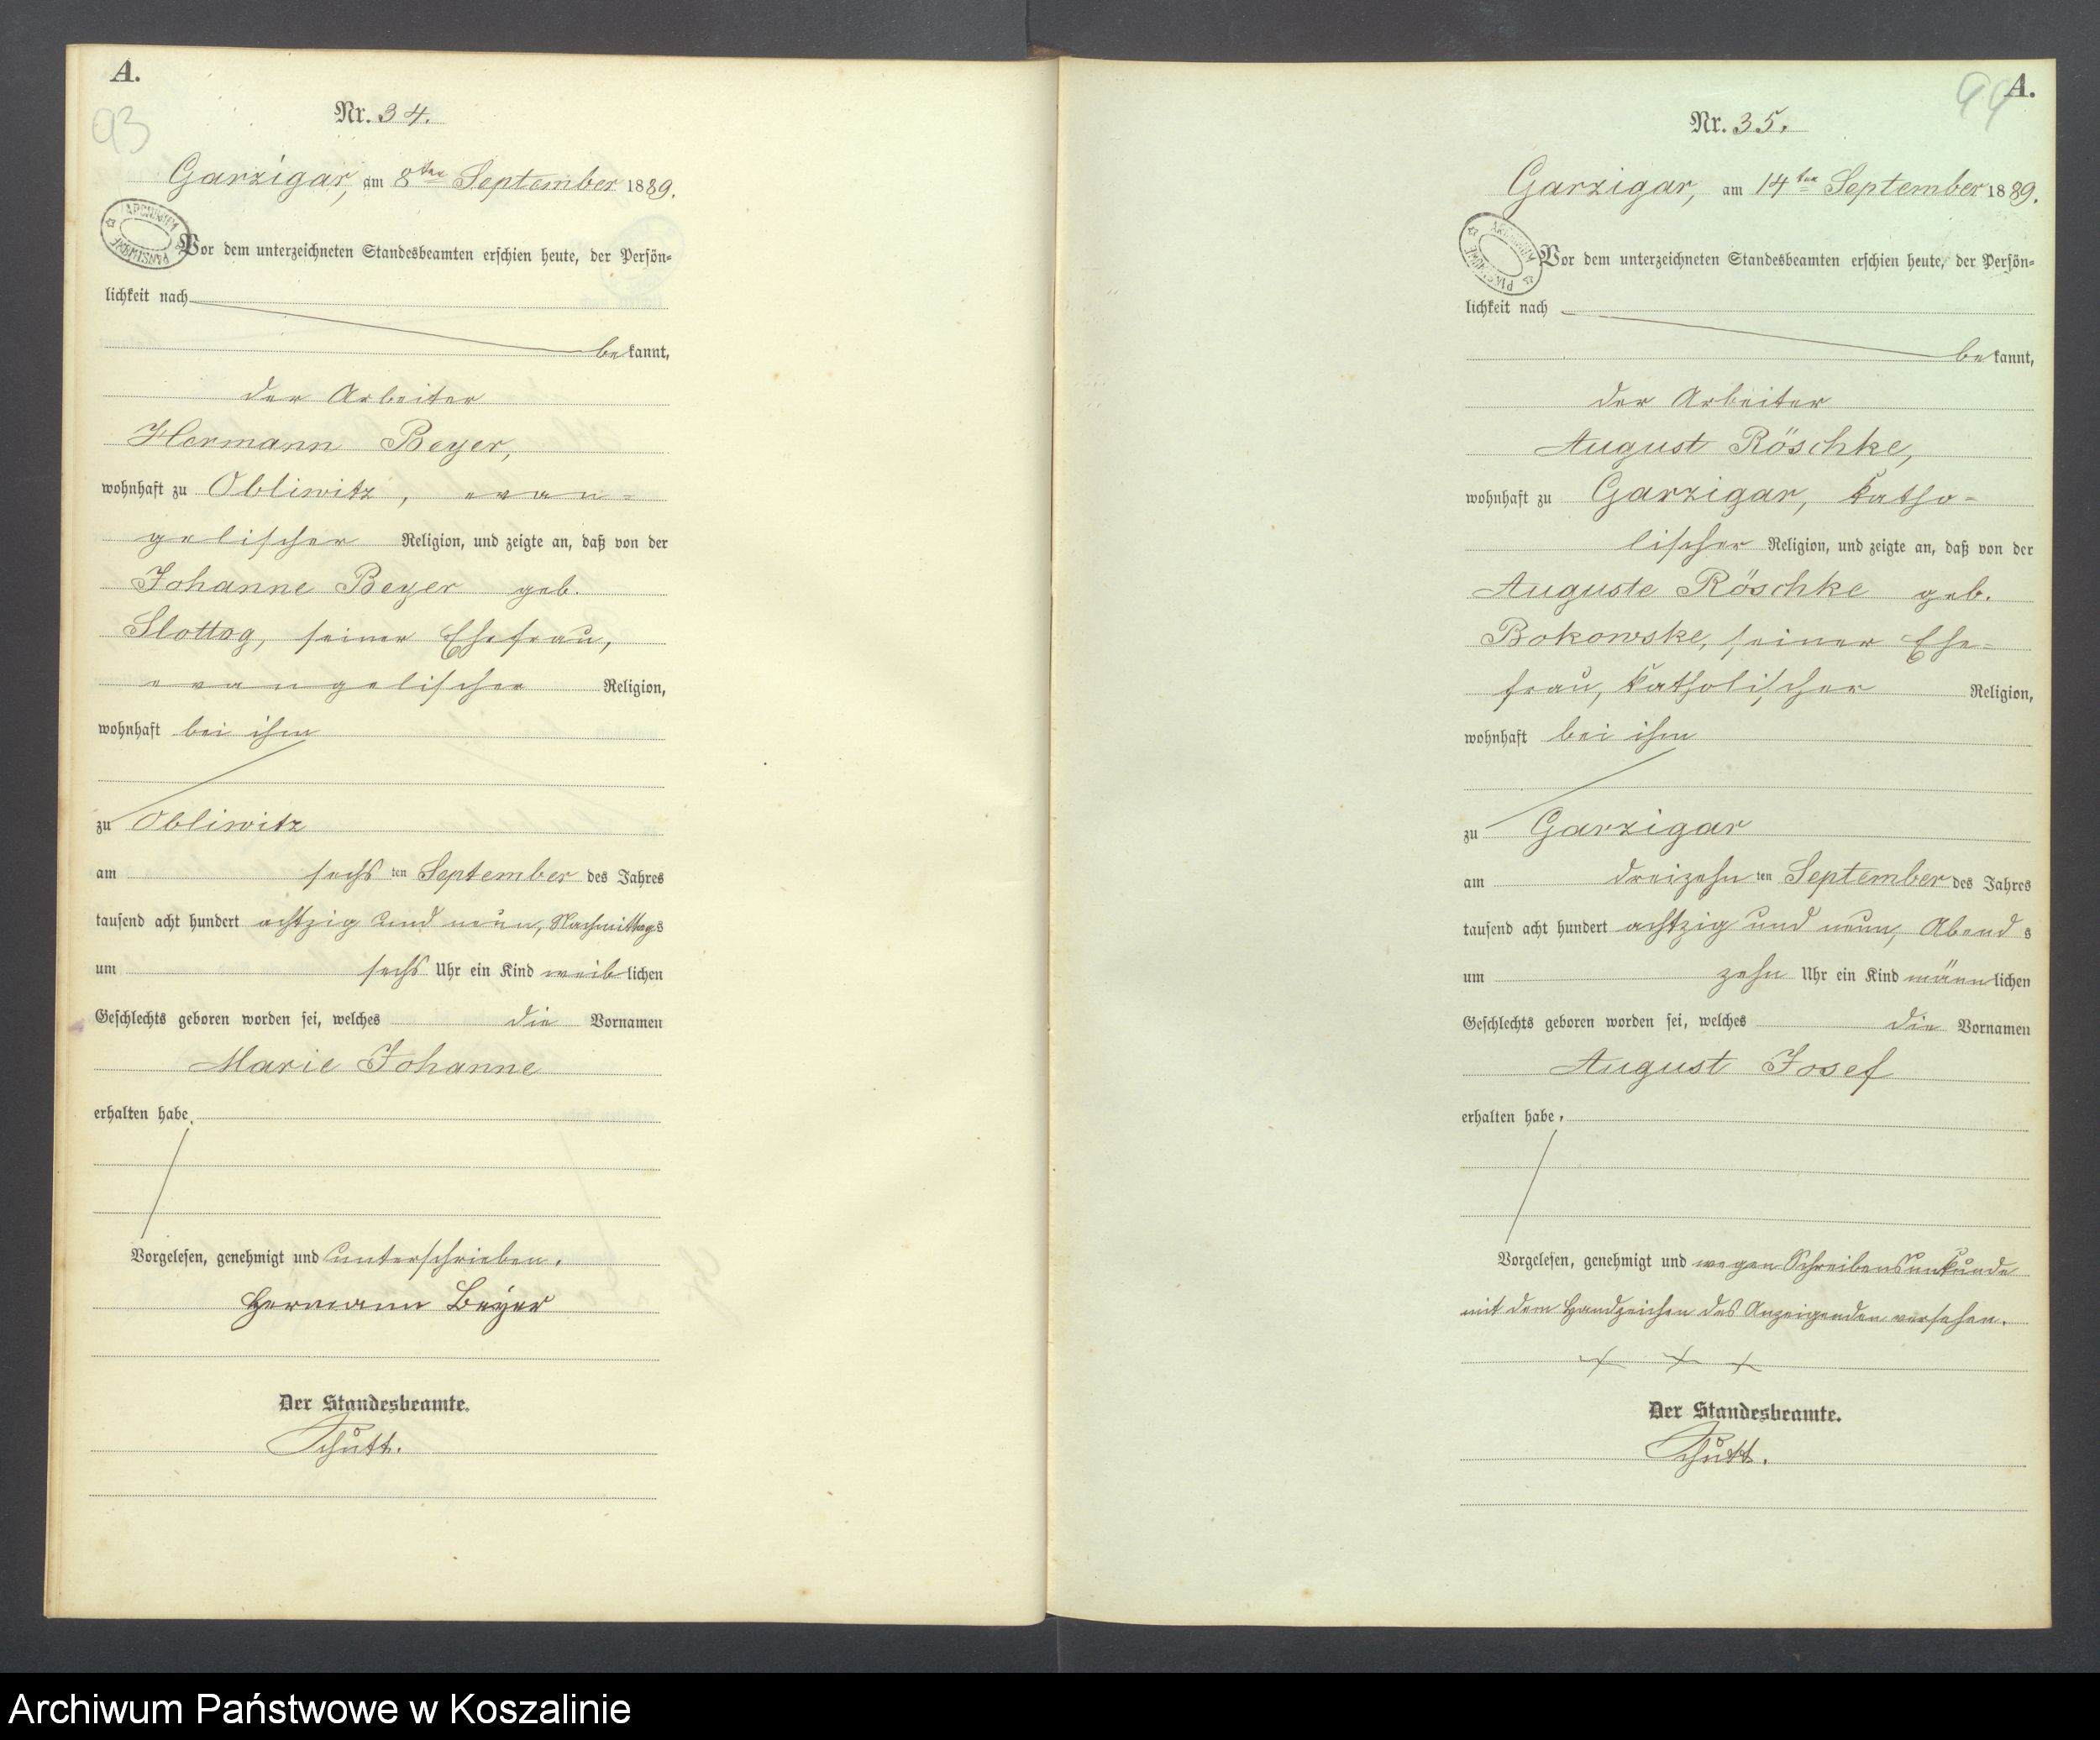 A.
93
Nr. 34.
Garzigar, am 8ten September 1889.
ARCHIWUM PAŃSTWOWE
Vor dem unterzeichneten Standesbeamten erschien heute, der Persön-
lichkeit nach
bekannt,
der Arbeiter
Hermann Beyer,
wohnhaft zu Obliwitz, evan-
gelischer Religion, und zeigte an, daß von der
Johanne Beyer geb.
seiner Ehefrau,
evangelischer Religion,
wohnhaft bei ihm
zu Obliwitz
am sechs ten September des Jahres
tausend acht hundert achtzig und neun, Nachmittags
um sechs Uhr ein Kind weiblichen
Geschlechts geboren worden sei, welches die Vornamen
Marie Johanne
erhalten habe.
Vorgelesen, genehmigt und unterschrieben.
Hermann Beyer
Der Standesbeamte.
Schütt.
A.
94
Nr. 35.
Garzigar, am 14ten September 1889.
ARCHIWUM PAŃSTWOWE
Vor dem unterzeichneten Standesbeamten erschien heute, der Persön-
lichkeit nach
bekannt,
der Arbeiter
August Röschke,
wohnhaft zu Garzigar, katho-
lischer Religion, und zeigte an, daß von der
Auguste Röschke geb.
Bokowske, seiner Ehe-
frau, katholischer Religion,
wohnhaft bei ihm
zu Garzigar
am dreizehn ten September des Jahres
tausend acht hundert achtzig und neun, Abends
um zehn Uhr ein Kind männlichen
Geschlechts geboren worden sei, welches die Vornamen
August Josef
erhalten habe.
Vorgelesen, genehmigt und wegen Schreibensunkunde
mit dem Handzeichen des Anzeigenden versehen.
+ + +
Der Standesbeamte.
Schütt.
Archiwum Państwowe w Koszalinie